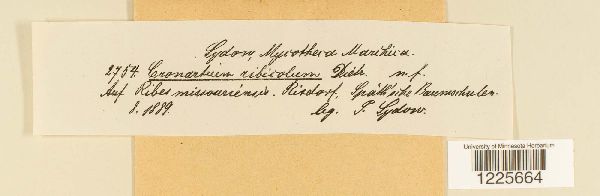 Sydow, Mycotheca Marchica.
2754. Cronartium ribicolum Dietr. n.f.
Auf Ribes missouriensis. Rixdorf, Späth'sche Baumschulen
8. 1889. leg. P. Sydow.
University of Minnesota Herbarium
1225664